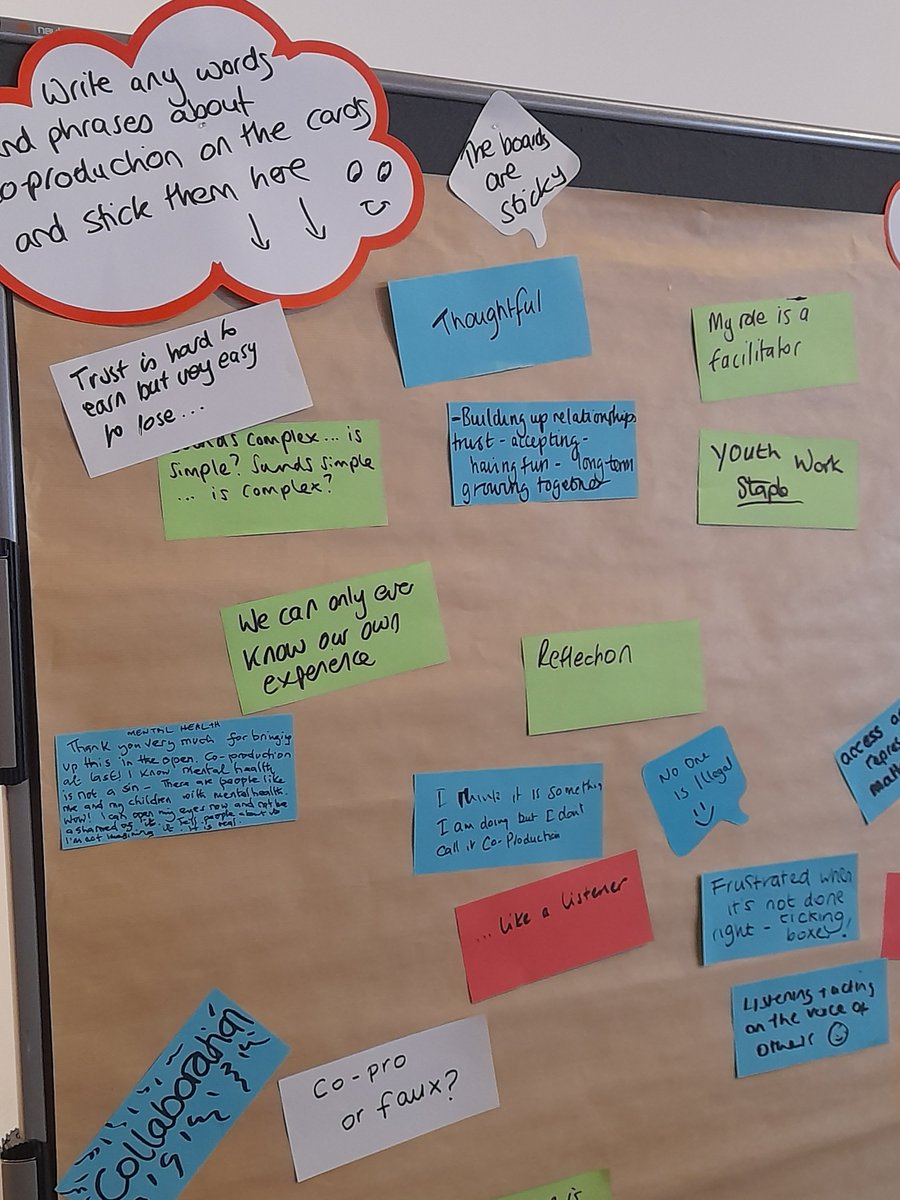 Write any words
nd phrases about
o-production on the cards
and stick them here
The boards
are
sticky
Thoughtful
My role is a
facilitator
Trust is hard to
earn but very easy
to lose...
complex... is
simple? Sounds simple
... is complex?
-Building up relationships
trust - accepting -
having fun - long-term
growing together
Youth Work
We can only ever
know our own
experience
Reflection
MENTAL HEALTH
Thank you very much for bringing
up this in the open. Co-production
at last! I know mental health
is not a sin - There are people like
me and my children with mental health.
Wow! I can open my eyes now and not be
ashamed of it. Tell people about it
I'm not imagining it. It is real.
I think it is something
I am doing but I don't
call it Co-Production
No One
is Illegal
access a
repres
mat
... like a listener
Frustrated when
it's not done
right - ticking
boxes!
Listening + acting
on the voice of
others
Collaboration
Co-pro
or faux?
is